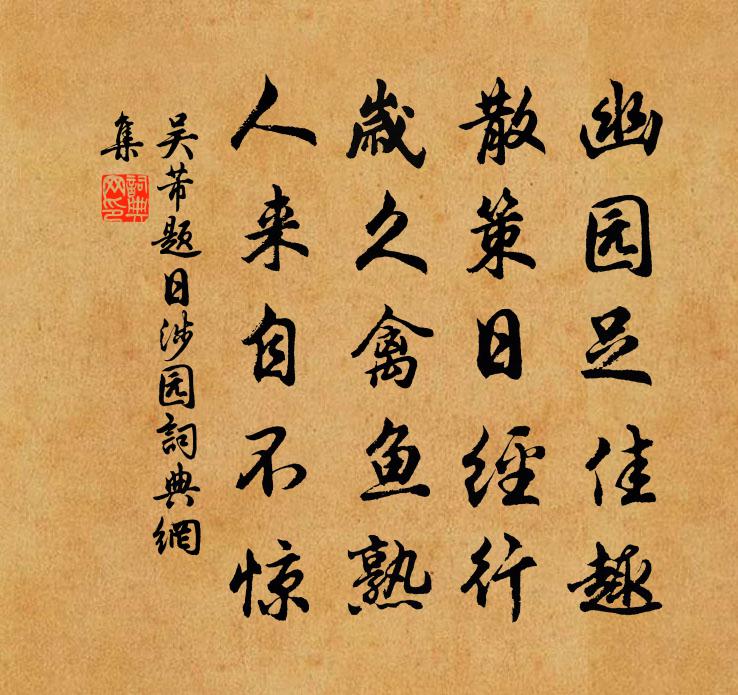 幽园足佳趣
散策日經行
歲久禽鱼熟
人来自不惊
吴芾题日涉园詞典網
集
詞典
网印